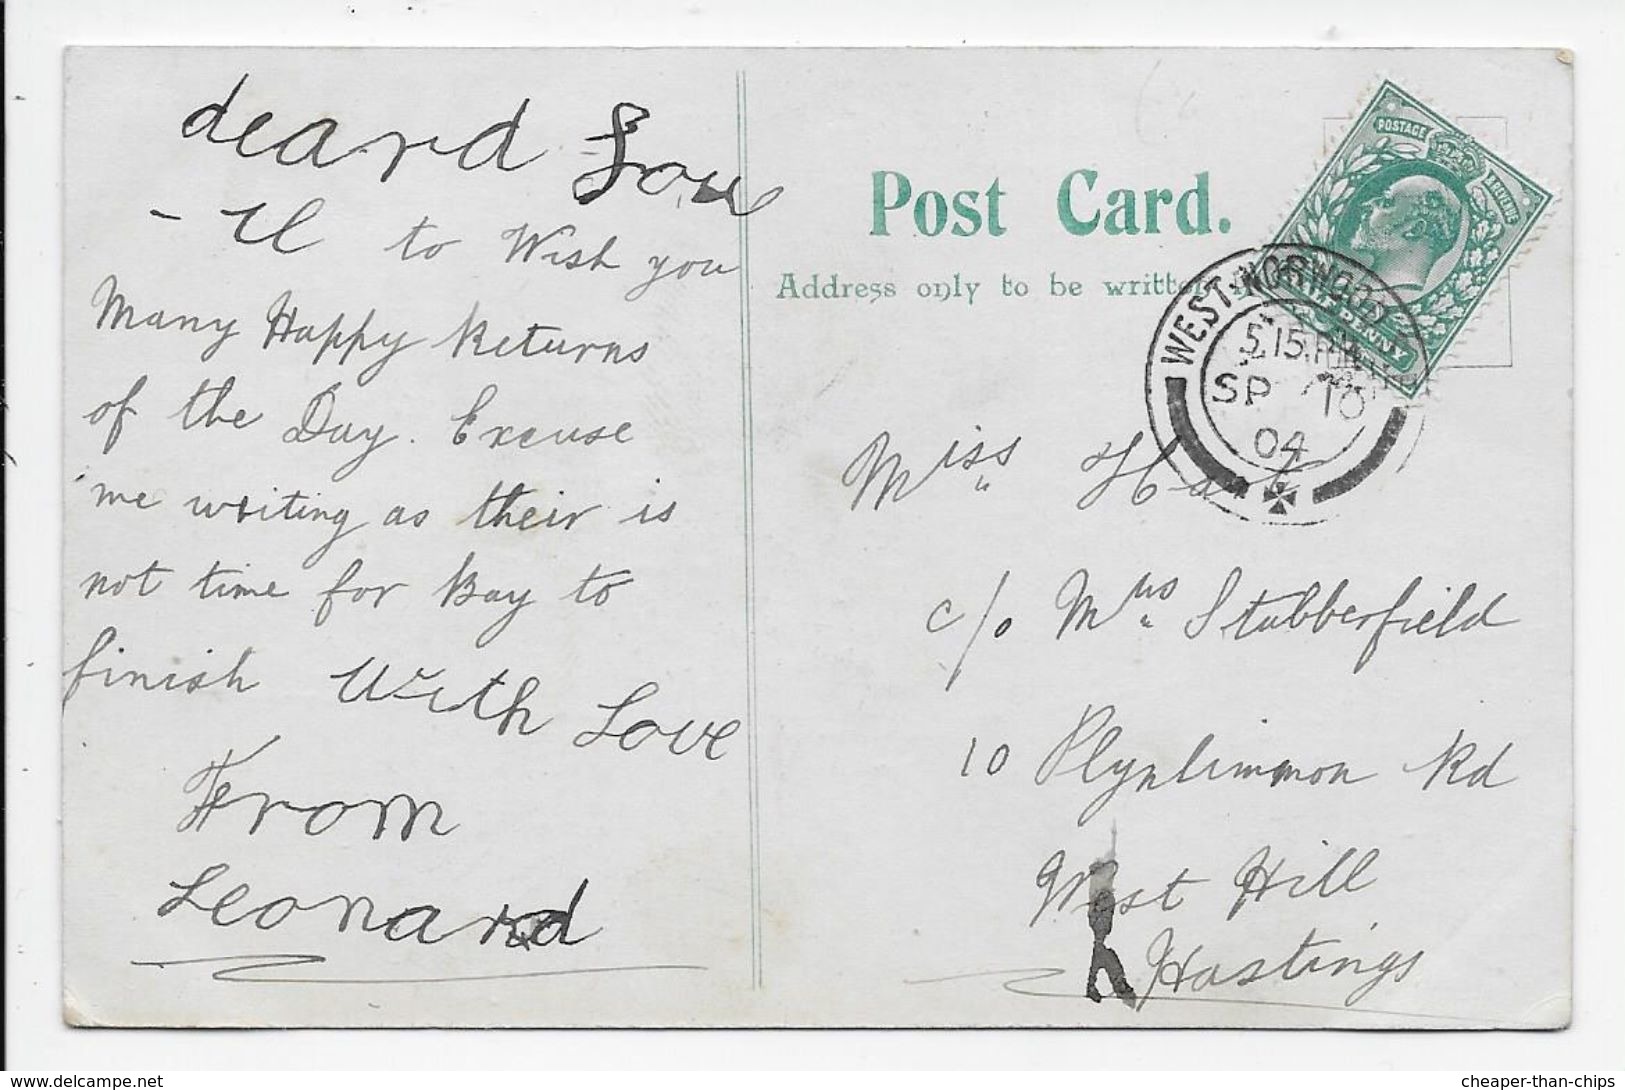 deard Lou
- el to Wish you
Many Happy Returns
of the Day. Excuse
me writing as their is
not time for Bay to
finish With Love
From
Leonard
Post Card.
Address only to be written
POSTAGE REVENUE
PENNY
WEST NORWOOD
5.15.PM
SP 10
04
Miss Hart
c/o Mrs Stubberfield
10 Plynlimmon Rd
West Hill
Hastings
cheaper-than-chips.delcampe.net
cheaper-than-chips